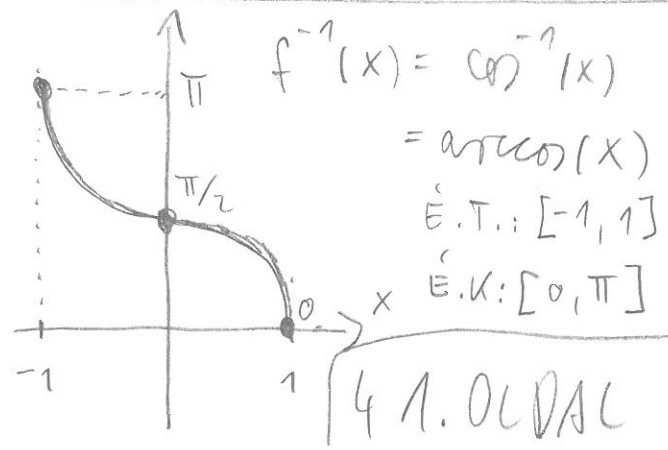 f⁻¹(x) = cos⁻¹(x)
= arccos(x)
É.T.: [-1, 1]
É.K: [0, π]
π
π/2
0
x
-1
1
41. OLDAL